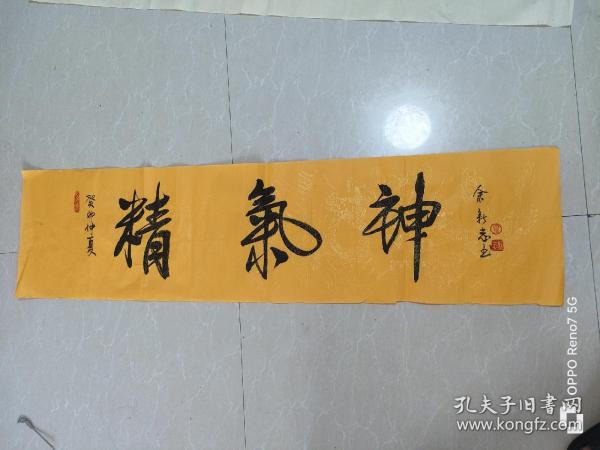 癸卯仲夏
精氣神
余新志
OPPO Reno7 5G
孔夫子旧书网
www.kongfz.com